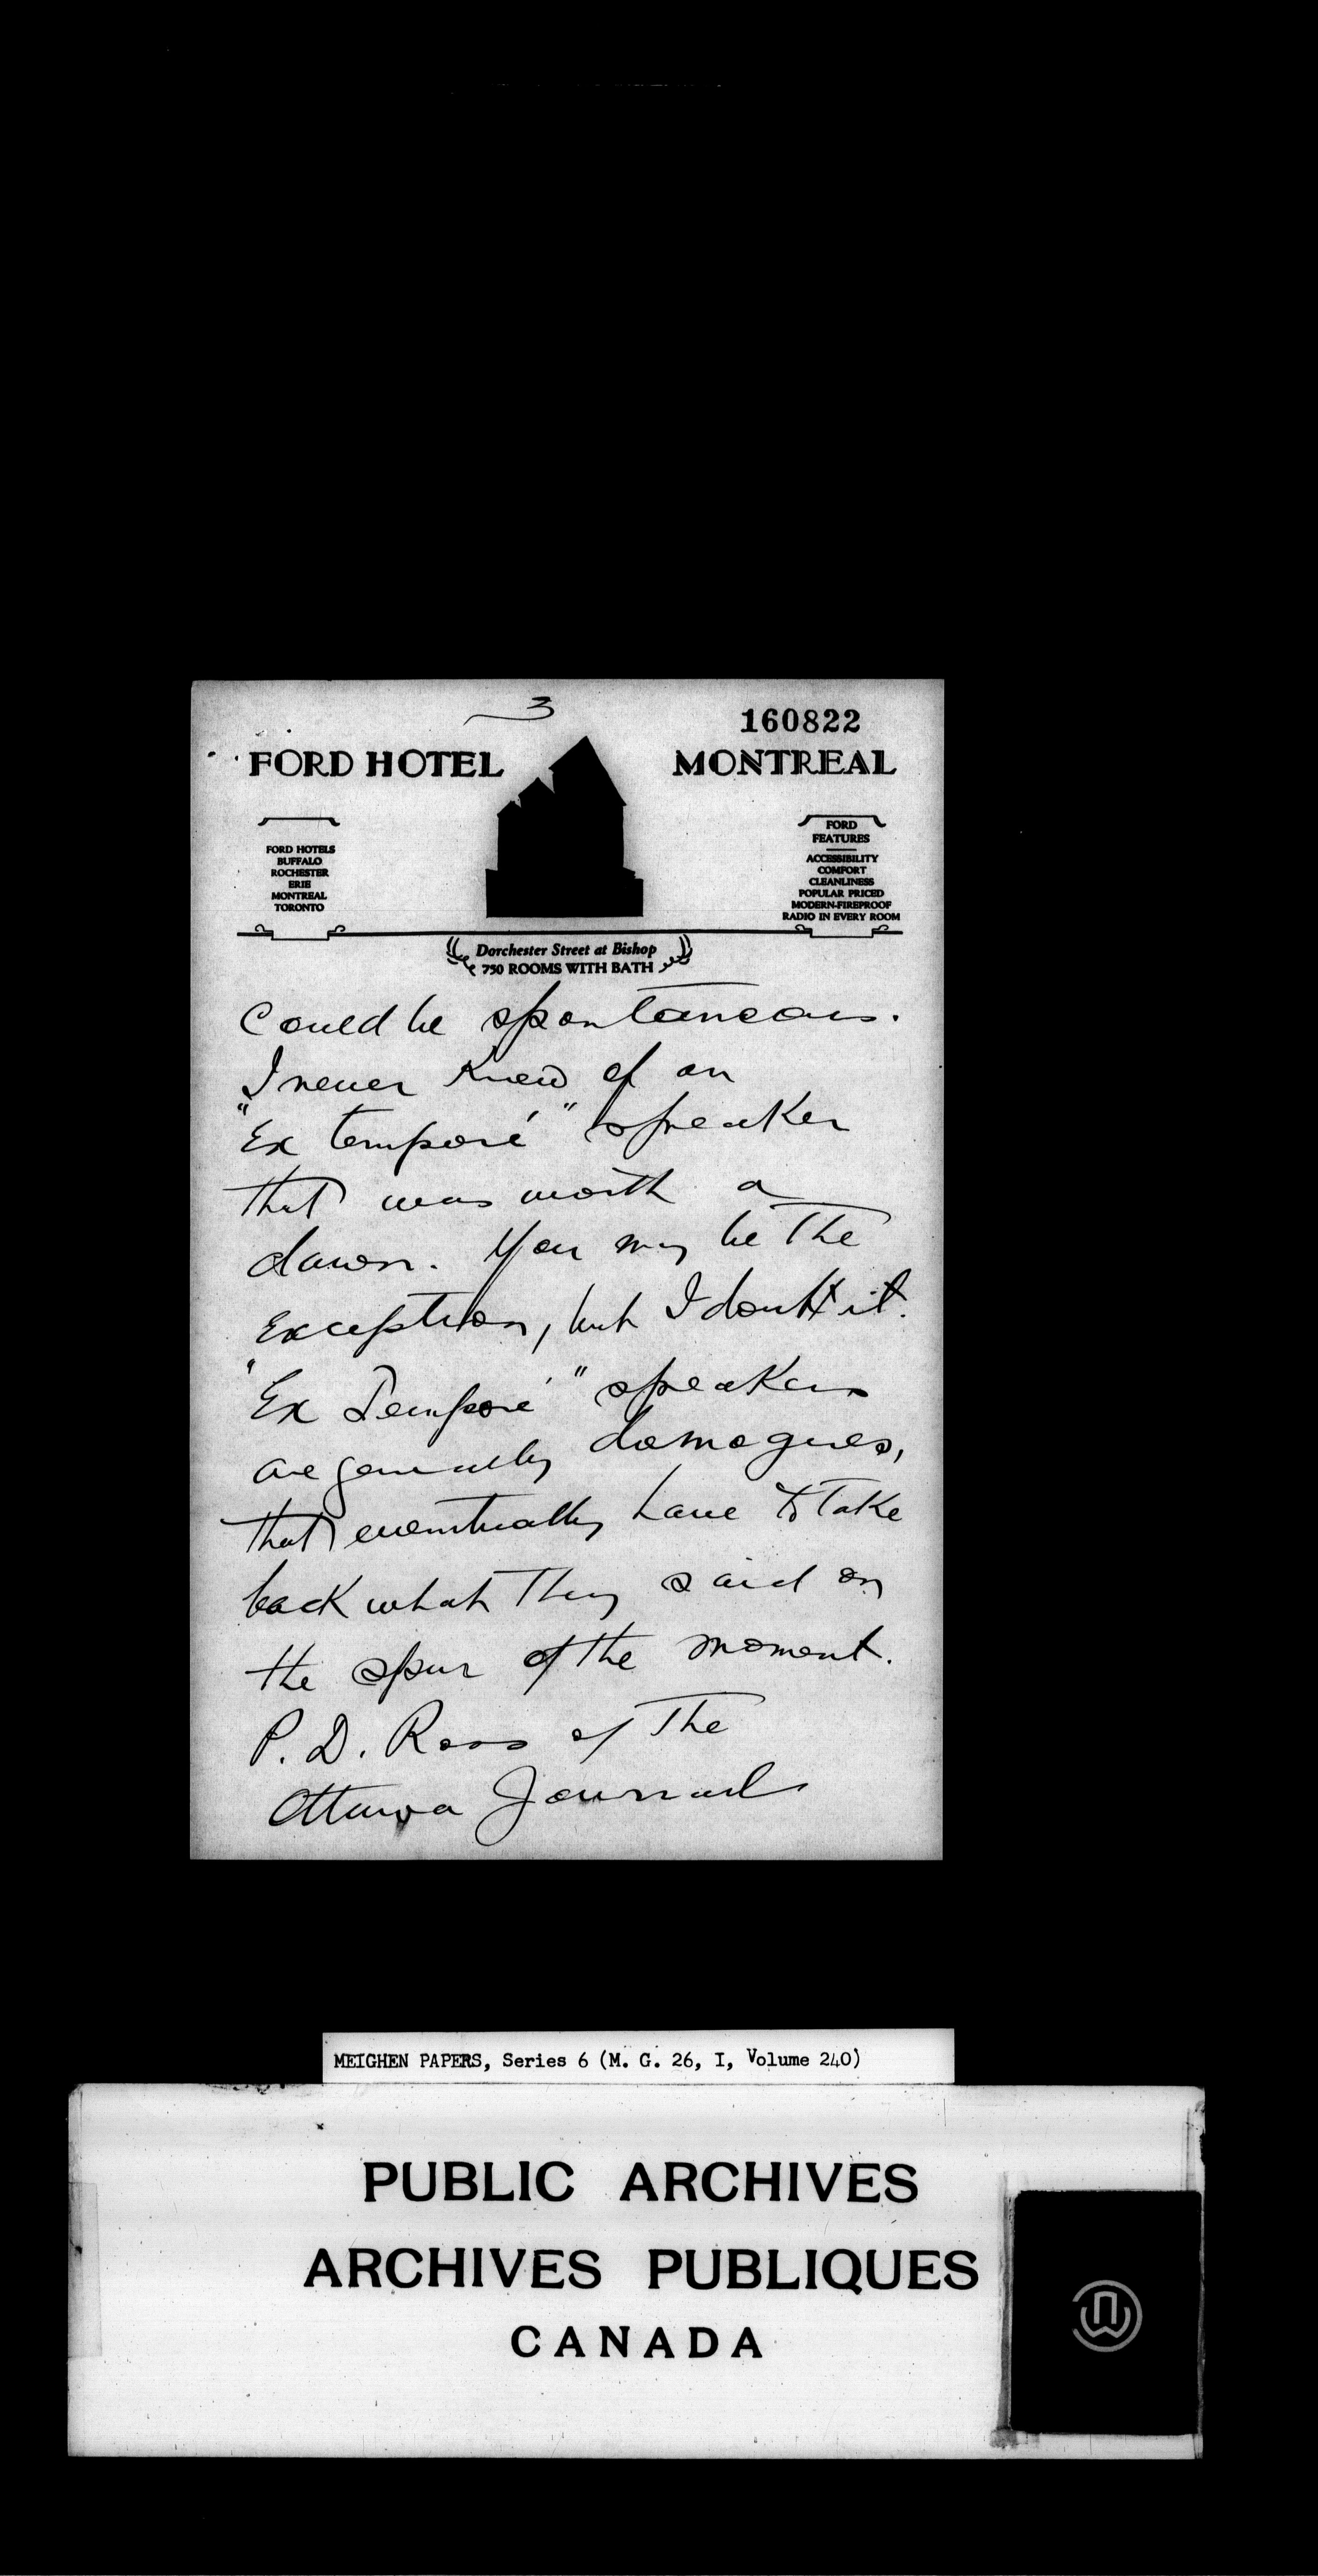 3
160822
FORD HOTEL MONTREAL
FORD HOTELS
BUFFALO
ROCHESTER
ERIE
MONTREAL
TORONTO
FORD
FEATURES
ACCESSIBILITY
COMFORT
CLEANLINESS
POPULAR PRICED
MODERN-FIREPROOF
RADIO IN EVERY ROOM
Dorchester Street at Bishop
750 ROOMS WITH BATH
Could be spontaneous.
I never knew of an
"Ex temporé" speaker
that was worth a
damn. You may be the
exception, but I doubt it.
"Ex Temporé" speakers
are generally damogues,
that eventually have to take
back what they said on
the spur of the moment.
P. D. Ross of the
Ottawa Journal
MEIGHEN PAPERS, Series 6 (M. G. 26, I, Volume 240)
PUBLIC ARCHIVES
ARCHIVES PUBLIQUES
CANADA